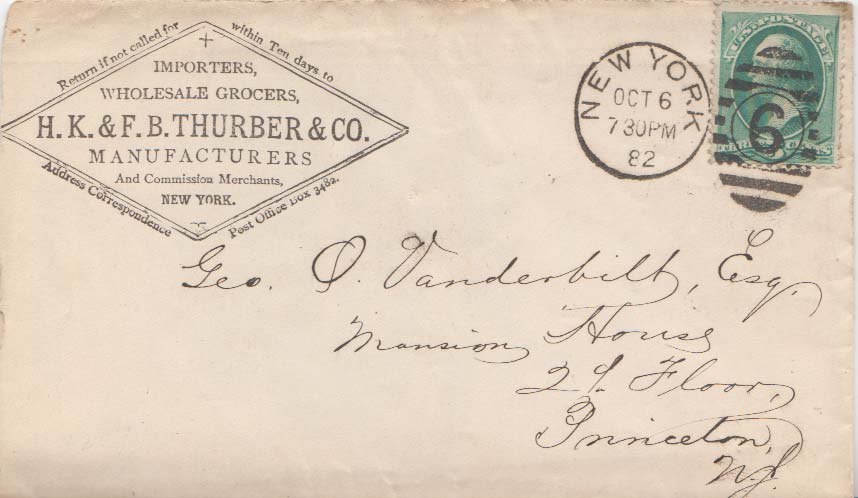 Return if not called for within Ten days to
IMPORTERS,
WHOLESALE GROCERS,
H. K. & F. B. THURBER & CO.
MANUFACTURERS
And Commission Merchants,
NEW YORK.
Address Correspondence Post Office Box 3482.
NEW YORK
OCT 6
730PM
82
U.S. POSTAGE
6
Geo. O. Vanderbilt, Esq.
Mansion House
2d. Floor,
Princeton,
N.J.